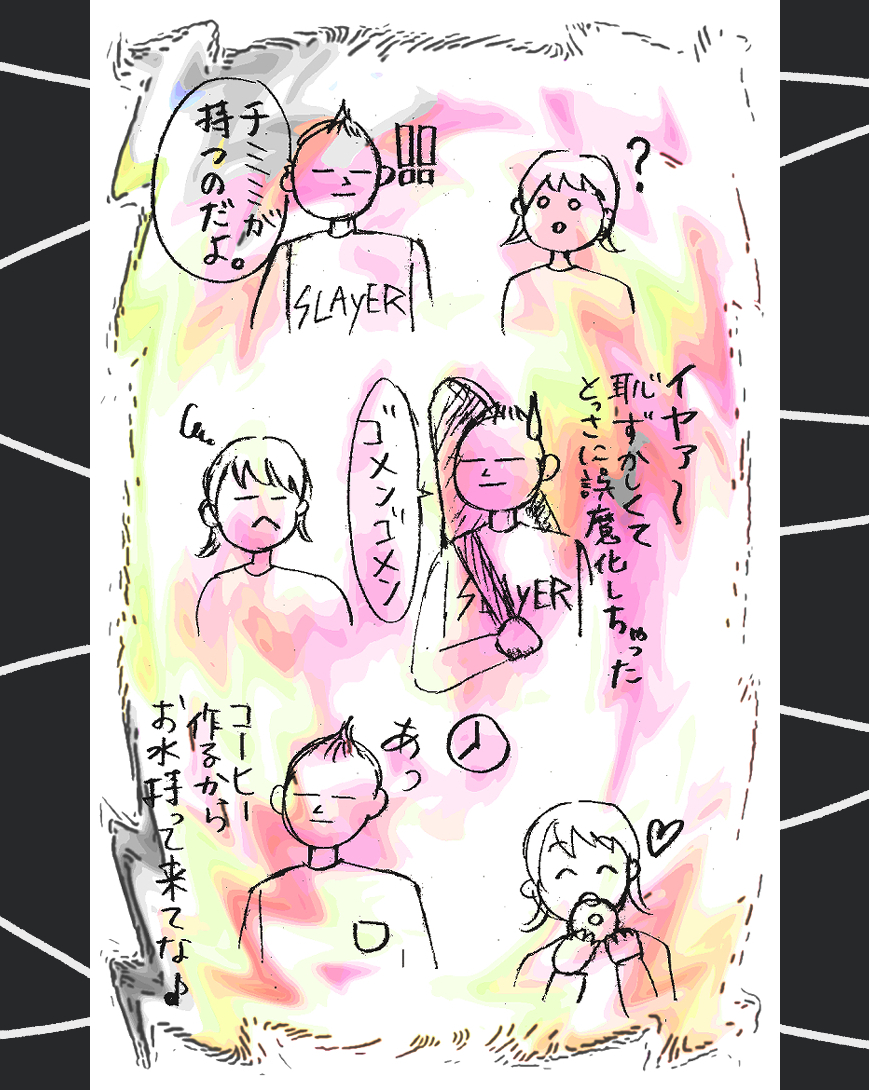 チミが
持つのだよ。
!!
?
SLAYER
イヤァ〜
恥ずかしくて
とっさに誤魔化しちゃった
ゴメンゴメン
SLAYER
あっ
コーヒー
作るから
お水持って来てな♪